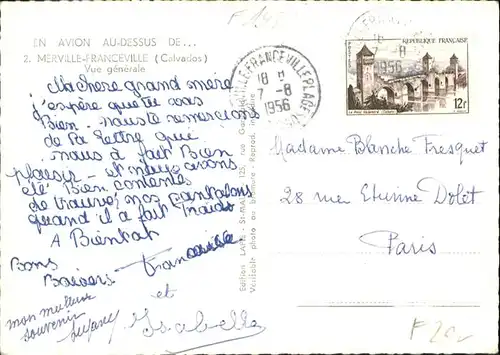 EN AVION AU-DESSUS DE...
2. MERVILLE-FRANCEVILLE (Calvados)
Vue générale
Ma chere grand mère
j'espère que tu vas
Bien. nous te remercions
de ta lettre qui
nous a fait Bien
plaisir - et nous avons
été Bien contentes
de trouver nos pantalons
quand il a fait froid
A Bientot
Bons
Baisers Francoise
et
mon meilleur
souvenir
Isabelle
Edition LAPIE - St-MAUR
Véritable photo au bromure - Reprod.
MERVILLE-FRANCEVILLE PLAGE
18 H
7 - 8
1956
RÉPUBLIQUE FRANÇAISE
12f
Madame Blanche Fresquet
28 rue Etienne Dolet
Paris